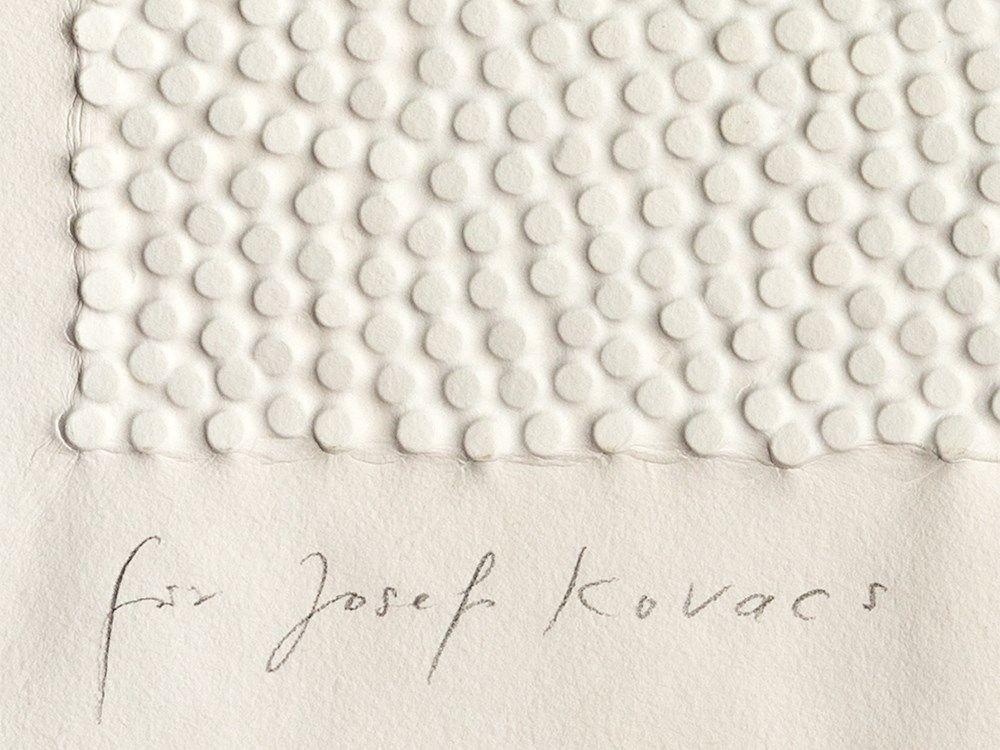 für Josef Kovacs